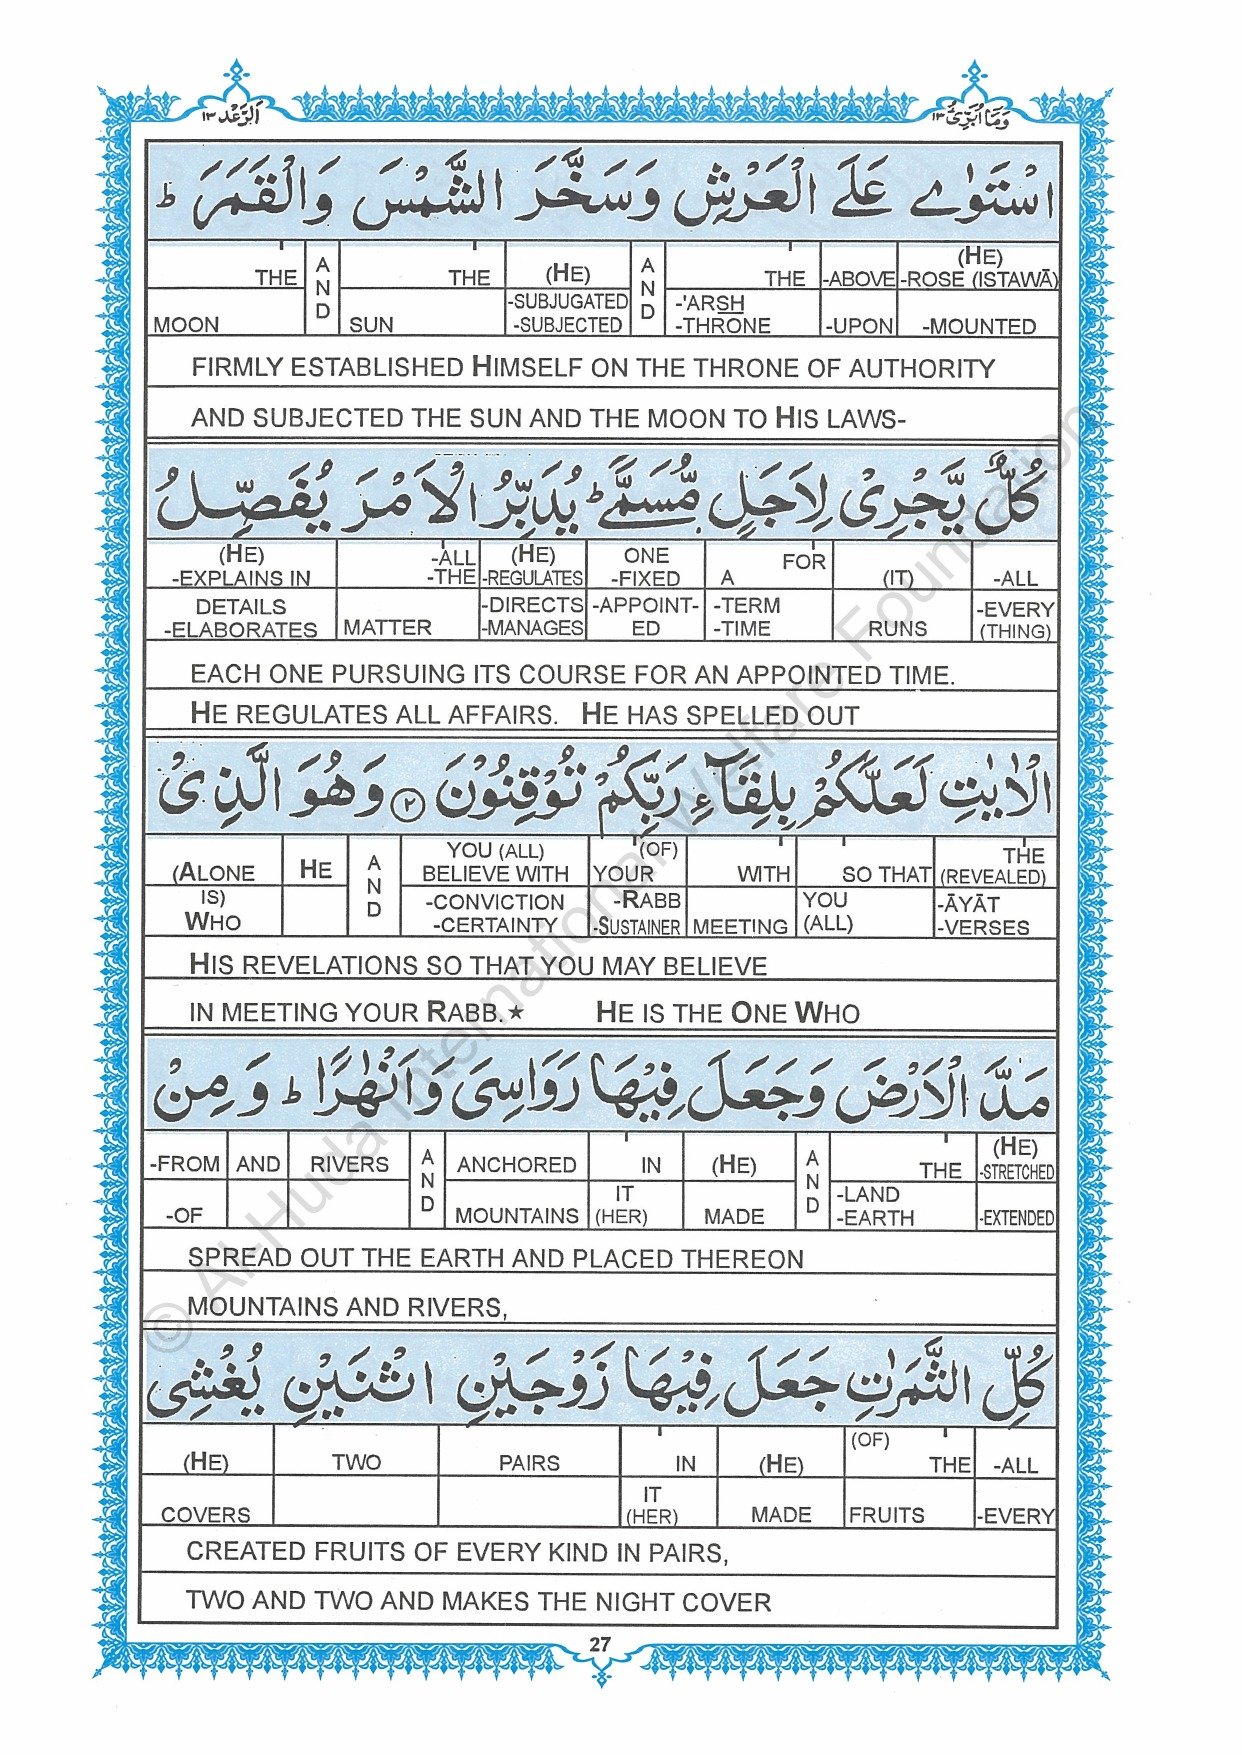 اَلرَّعْد ١٣
وَمَا اُبَرِّئُ ١٣
اسْتَوٰے عَلَے الْعَرْشِ وَسَخَّرَ الشَّمْسَ وَالْقَمَرَ ؕ
THE AND THE (HE) AND THE -ABOVE (HE) -ROSE (ISTAWĀ)
MOON SUN -SUBJUGATED -SUBJECTED -'ARSH -THRONE -UPON -MOUNTED
FIRMLY ESTABLISHED HIMSELF ON THE THRONE OF AUTHORITY
AND SUBJECTED THE SUN AND THE MOON TO HIS LAWS-
كُلٌّ يَّجْرِیْ لِاَجَلٍ مُّسَمًّے ؕ يُدَبِّرُ الْاَمْرَ يُفَصِّلُ
(HE) -EXPLAINS IN -ALL -THE (HE) -REGULATES ONE -FIXED A FOR (IT) -ALL
DETAILS -ELABORATES MATTER -DIRECTS -MANAGES -APPOINT-ED -TERM -TIME RUNS -EVERY (THING)
EACH ONE PURSUING ITS COURSE FOR AN APPOINTED TIME.
HE REGULATES ALL AFFAIRS. HE HAS SPELLED OUT
الْاٰيٰتِ لَعَلَّكُمْ بِلِقَآءِ رَبِّكُمْ تُوْقِنُوْنَ ۝۲ وَهُوَ الَّذِیْ
(ALONE HE AND YOU (ALL) BELIEVE WITH (OF) YOUR WITH SO THAT THE (REVEALED)
IS) WHO -CONVICTION -CERTAINTY -RABB -SUSTAINER MEETING YOU (ALL) -ĀYĀT -VERSES
HIS REVELATIONS SO THAT YOU MAY BELIEVE
IN MEETING YOUR RABB.★ HE IS THE ONE WHO
مَدَّ الْاَرْضَ وَجَعَلَ فِيْهَا رَوَاسِیَ وَاَنْهٰرًا ؕ وَمِنْ
-FROM AND RIVERS AND ANCHORED IN (HE) AND THE (HE) -STRETCHED
-OF MOUNTAINS IT (HER) MADE -LAND -EARTH -EXTENDED
SPREAD OUT THE EARTH AND PLACED THEREON
MOUNTAINS AND RIVERS,
كُلِّ الثَّمَرٰتِ جَعَلَ فِيْهَا زَوْجَيْنِ اثْنَيْنِ يُغْشِی
(HE) TWO PAIRS IN (HE) (OF) THE -ALL
COVERS IT (HER) MADE FRUITS -EVERY
CREATED FRUITS OF EVERY KIND IN PAIRS,
TWO AND TWO AND MAKES THE NIGHT COVER
27
© Al-Huda International Welfare Foundation